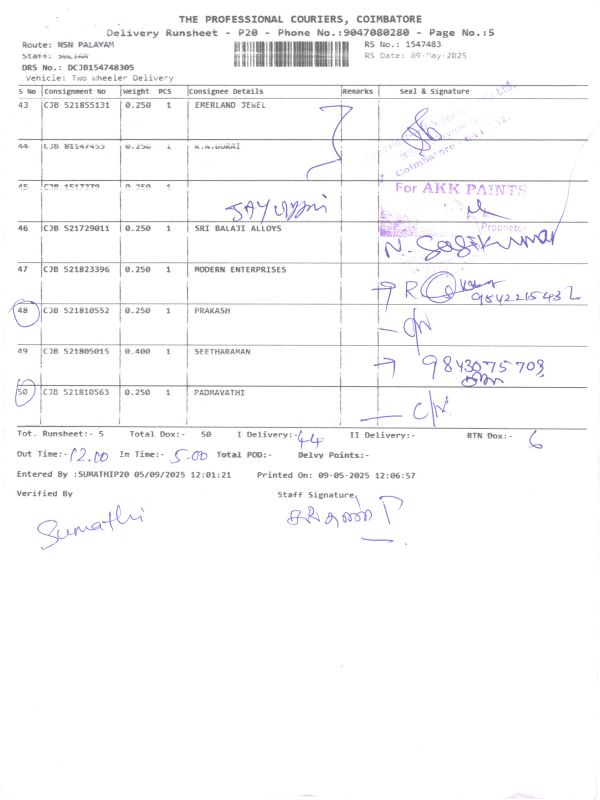 THE PROFESSIONAL COURIERS, COIMBATORE
Delivery Runsheet - P20 - Phone No.:9047080280 - Page No.:5
Route: NSN PALAYAM
RS No.: 1547483
Staff:
RS Date: 09-May-2025
DRS No.: DCJB154748305
Vehicle: Two Wheeler Delivery
S No Consignment No Weight PCS Consignee Details Remarks Seal & Signature
43 CJB 521855131 0.250 1 EMERLAND JEWEL
44 CJB 81147455 0.250 1 K.N.DURAI
Coimbatore
45 CJB 0.250 1
For AKK PAINTS
Proprietor
46 CJB 521729011 0.250 1 SRI BALAJI ALLOYS
N. Sasikumar
47 CJB 521823396 0.250 1 MODERN ENTERPRISES
48 CJB 521810552 0.250 1 PRAKASH
49 CJB 521805015 0.400 1 SEETHARAMAN
9843075708
50 CJB 521810563 0.250 1 PADMAVATHI
Tot. Runsheet:- 5 Total Dox:- 50 I Delivery:- 44 II Delivery:- RTN Dox:- 6
Out Time:- 12.00 In Time:- 5.00 Total POD:- Delvy Points:-
Entered By :SUMATHIP20 05/09/2025 12:01:21 Printed On: 09-05-2025 12:06:57
Verified By Staff Signature
Sumathi